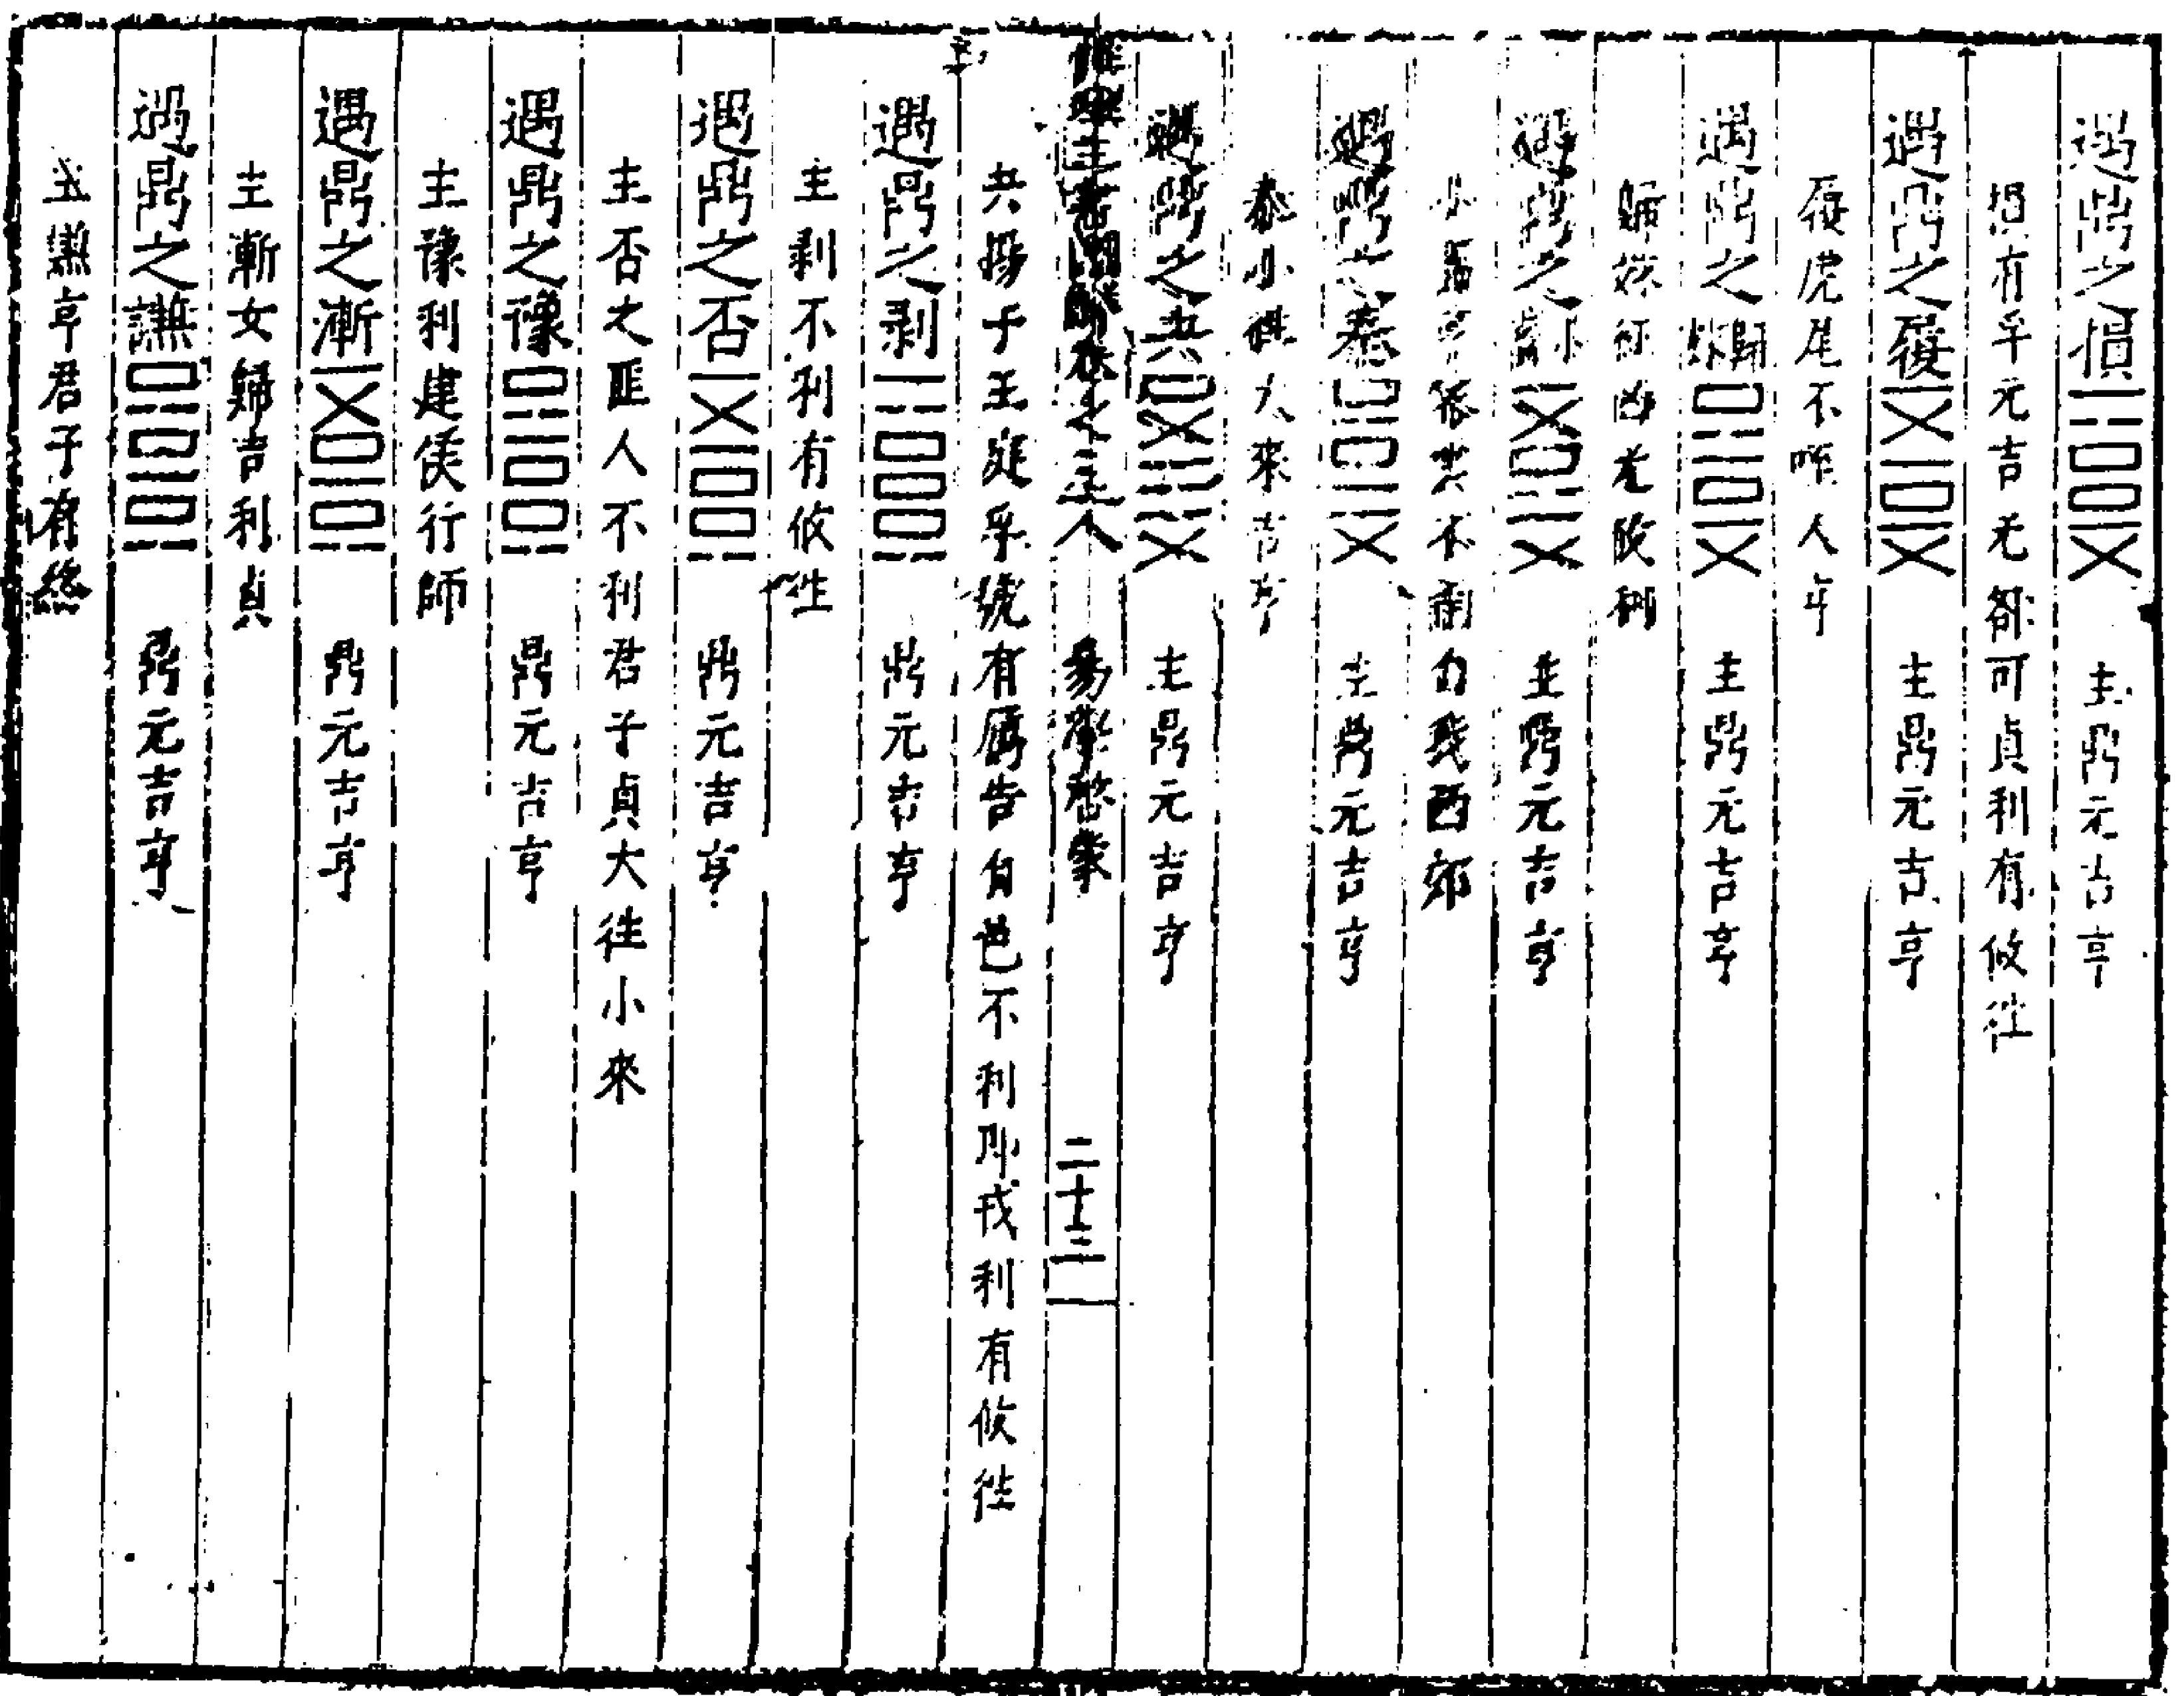 遇鼎之損
主鼎元吉亨
損有孚元吉无咎可貞利有攸往
遇鼎之履
主鼎元吉亨
履虎尾不咥人亨
遇鼎之歸妹
主鼎元吉亨
歸妹征凶无攸利
遇鼎之小畜
主鼎元吉亨
小畜亨密雲不雨自我西郊
遇鼎之泰
主鼎元吉亨
泰小徃大來吉亨
遇鼎之夬
主鼎元吉亨
易學啓蒙
二十三
夬揚于王庭孚號有厲告自邑不利即戎利有攸徃
遇鼎之剥
鼎元吉亨
主剥不利有攸徃
遇鼎之否
鼎元吉亨
主否之匪人不利君子貞大徃小來
遇鼎之豫
鼎元吉亨
主豫利建侯行師
遇鼎之漸
鼎元吉亨
主漸女歸吉利貞
遇鼎之謙
鼎元吉亨
主謙亨君子有終